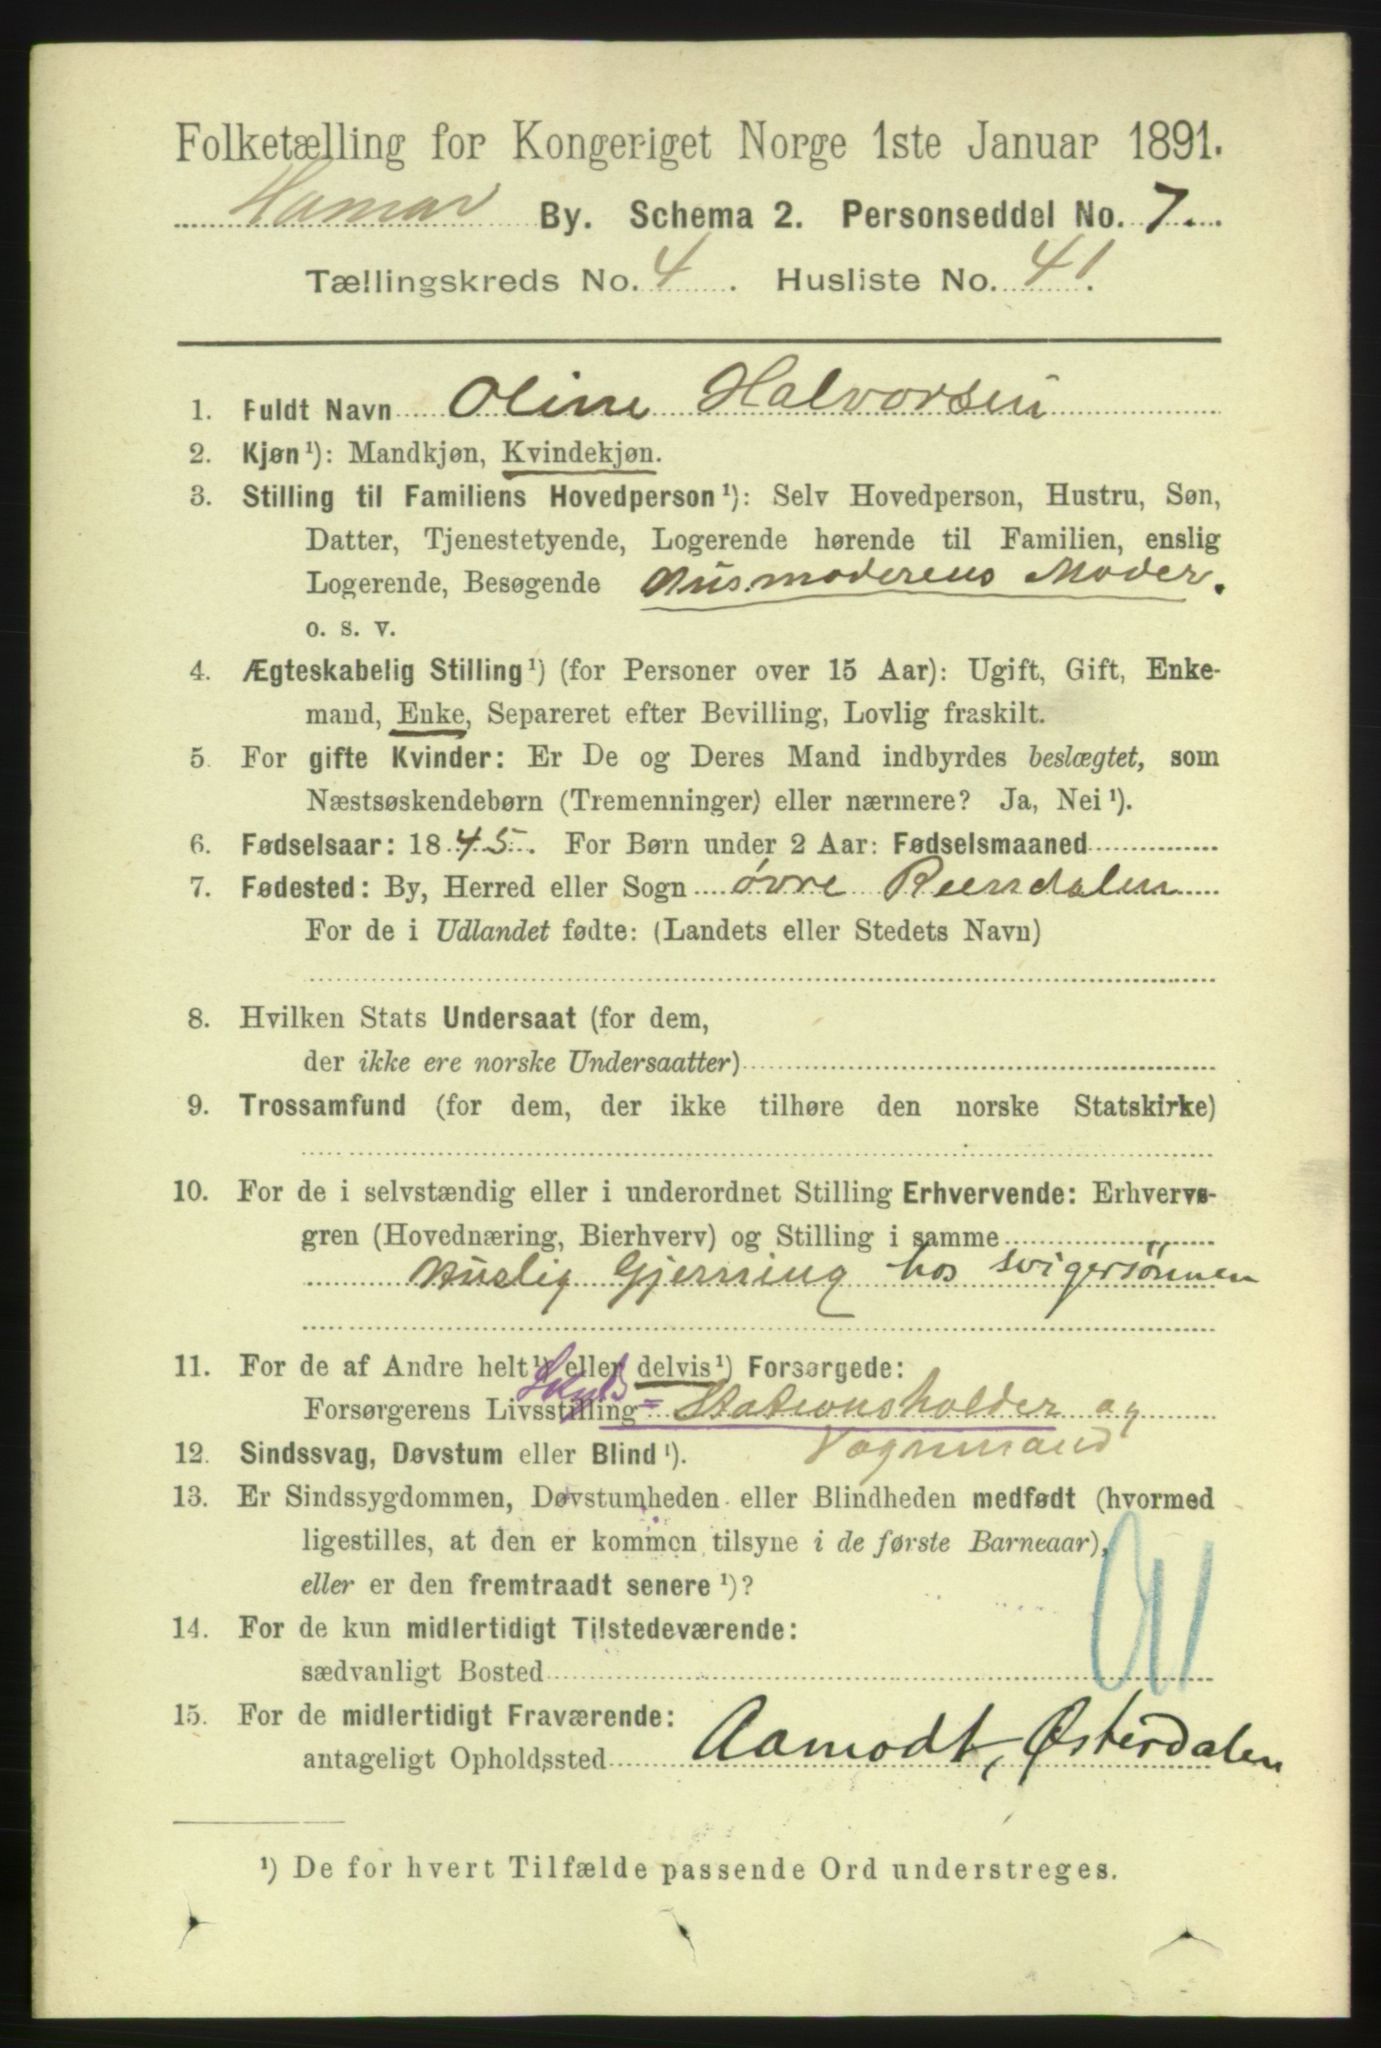 Folketælling for Kongeriget Norge 1ste Januar 1891.
Hamar By. Schema 2. Personseddel No. 7.
Tællingskreds No. 4. Husliste No. 41.
1. Fuldt Navn Oline Halvorsen
2. Kjøn¹): Mandkjøn, Kvindekjøn.
3. Stilling til Familiens Hovedperson¹): Selv Hovedperson, Hustru, Søn,
Datter, Tjenestetyende, Logerende hørende til Familien, enslig
Logerende, Besøgende Husmoderens Moder.
o. s. v.
4. Ægteskabelig Stilling¹) (for Personer over 15 Aar): Ugift, Gift, Enke-
mand, Enke, Separeret efter Bevilling, Lovlig fraskilt.
5. For gifte Kvinder: Er De og Deres Mand indbyrdes beslægtet, som
Næstsøskendebørn (Tremenninger) eller nærmere? Ja, Nei¹).
6. Fødselsaar: 1845. For Børn under 2 Aar: Fødselsmaaned
7. Fødested: By, Herred eller Sogn øvre Reendalen
For de i Udlandet fødte: (Landets eller Stedets Navn)
8. Hvilken Stats Undersaat (for dem,
der ikke ere norske Undersaatter)
9. Trossamfund (for dem, der ikke tilhøre den norske Statskirke)
10. For de i selvstændig eller i underordnet Stilling Erhvervende: Erhvervs-
gren (Hovednæring, Bierhverv) og Stilling i samme
Huslig Gjerning hos svigersönnen
11. For de af Andre helt¹) eller delvis¹) Forsørgede:
Skyds=
Forsørgerens Livsstilling Stationsholder og
Vognmand
12. Sindssvag, Døvstum eller Blind¹).
13. Er Sindssygdommen, Døvstumheden eller Blindheden medfødt (hvormed
ligestilles, at den er kommen tilsyne i de første Barneaar),
eller er den fremtraadt senere¹)?
14. For de kun midlertidigt Tilstedeværende:
sædvanligt Bosted
15. For de midlertidigt Fraværende:
antageligt Opholdssted Aamodt, Østerdalen
¹) De for hvert Tilfælde passende Ord understreges.